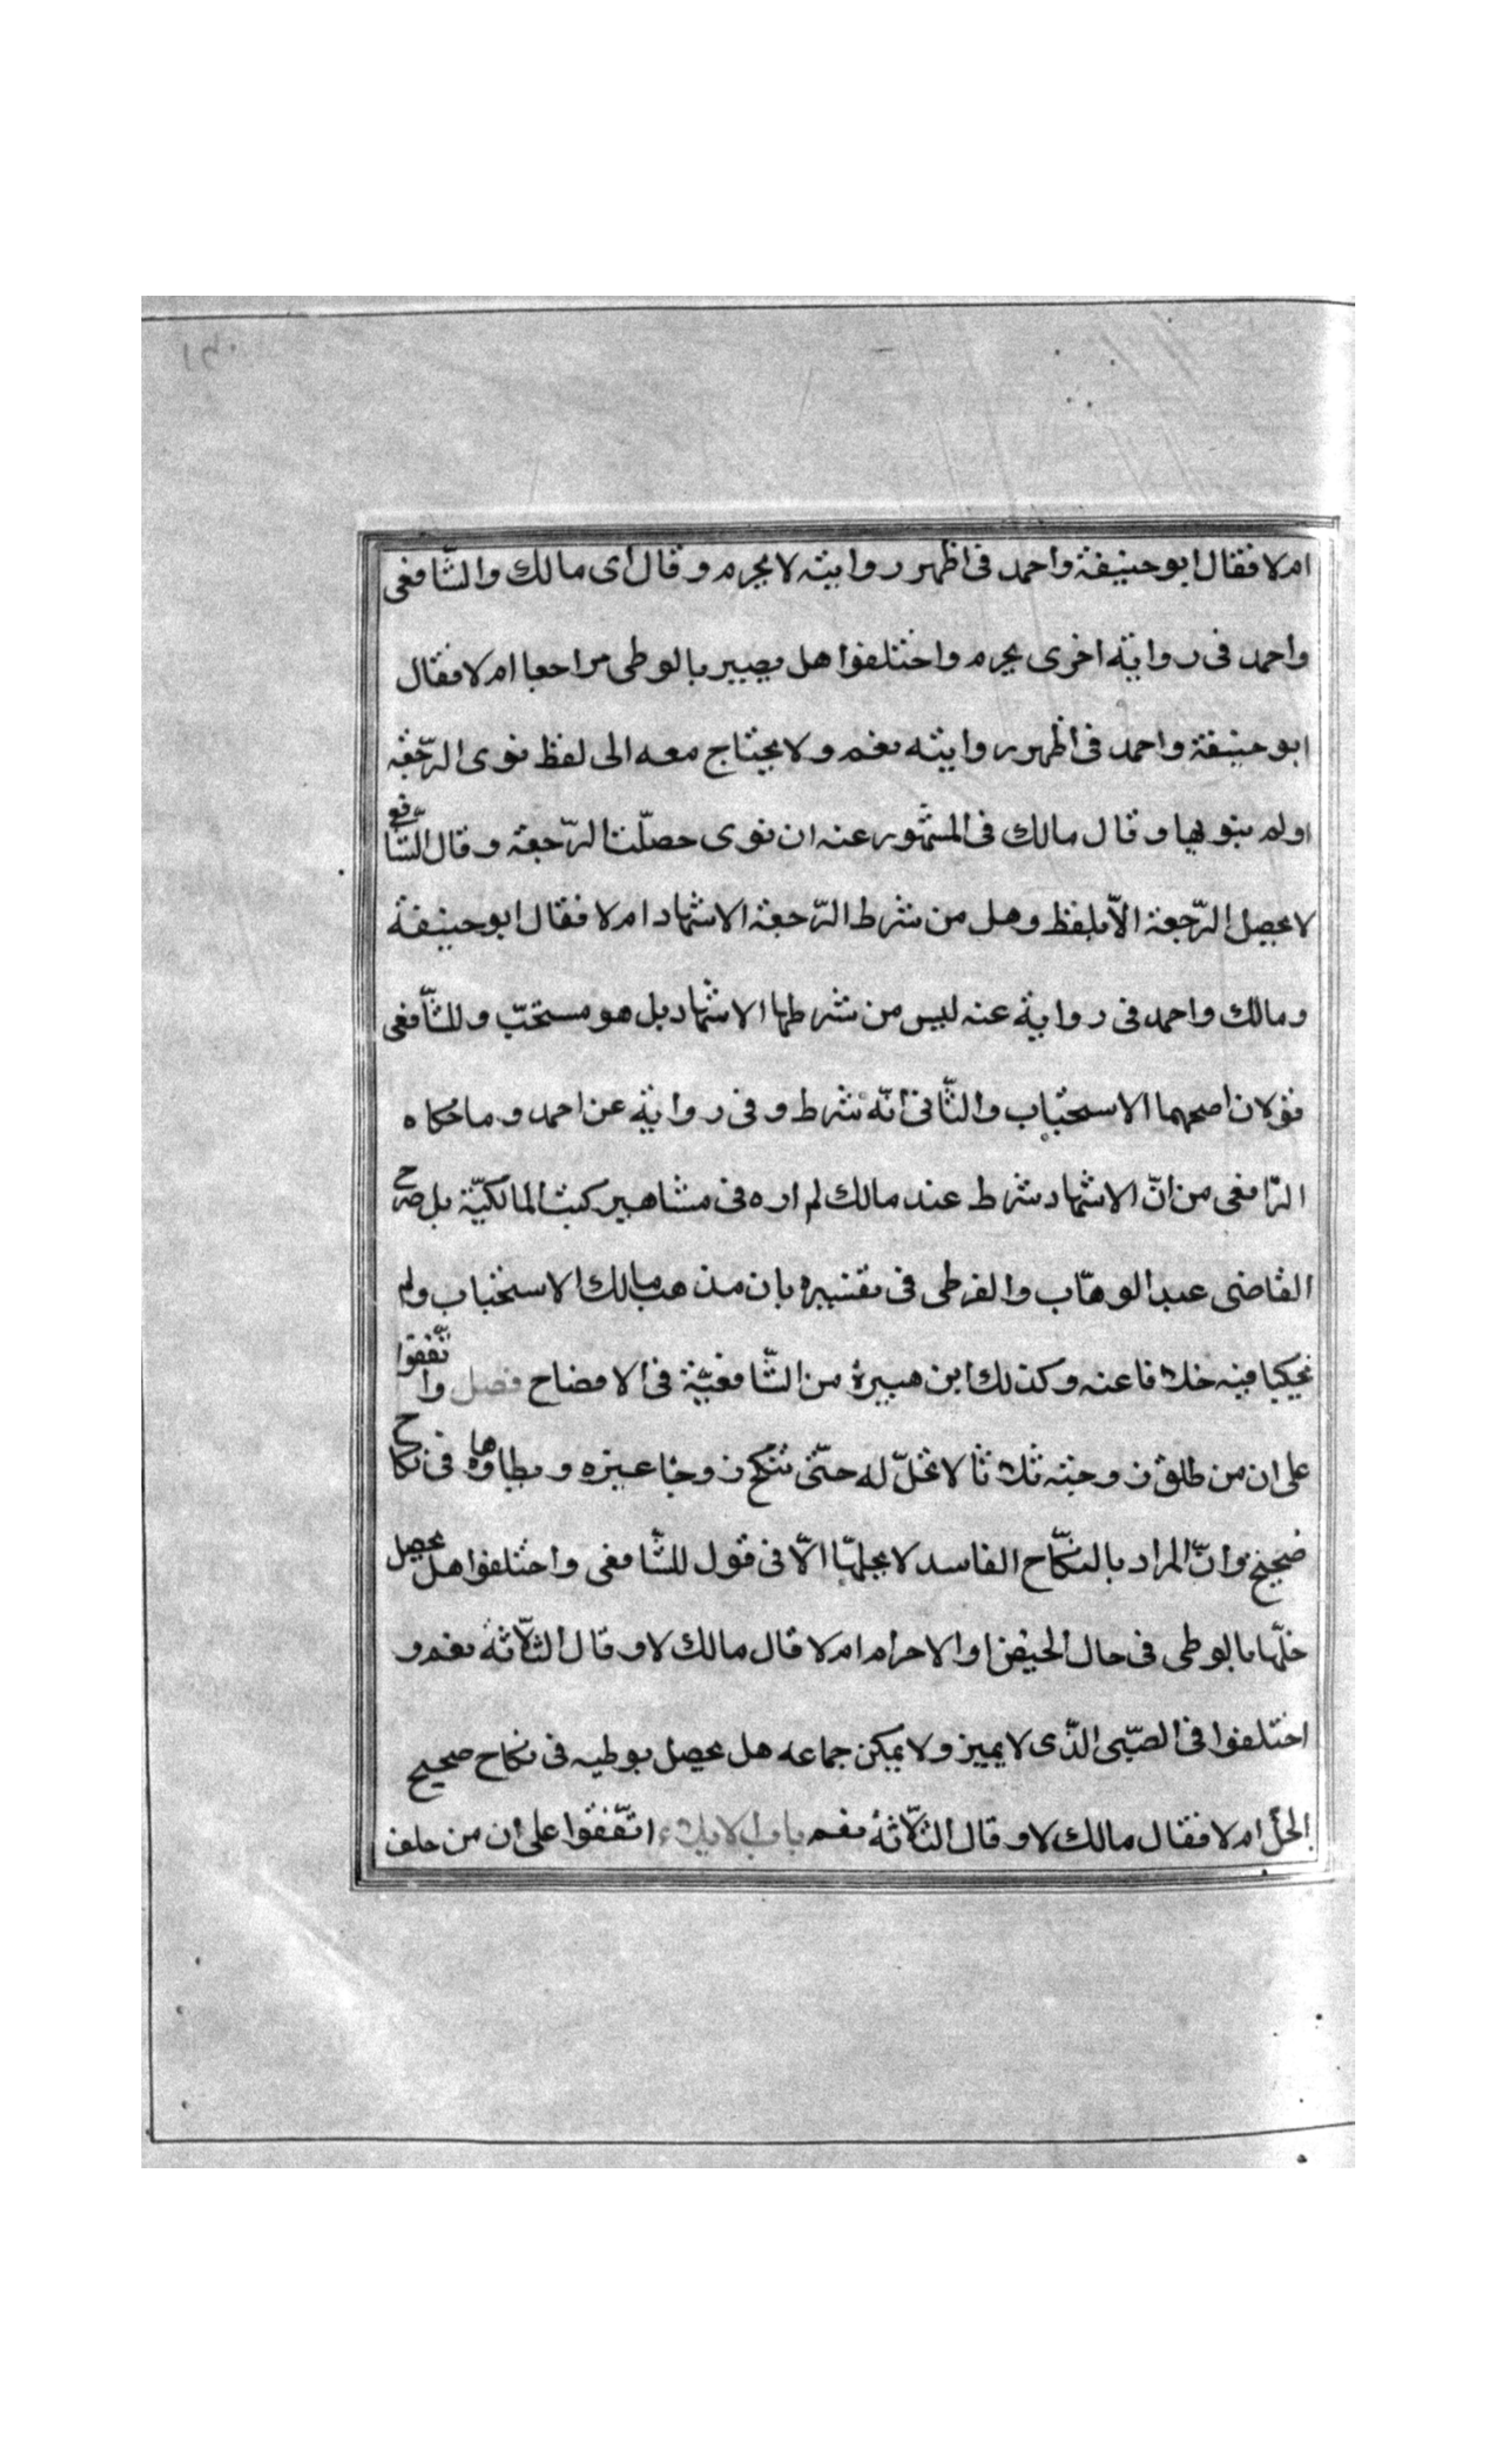 ام لا فقال ابو حنيفة واحمد فى اظهر روايته لا يحرم وقال اى مالك والشّافعى
واحمد فى رواية اخرى يحرم واختلفوا هل يصير بالوطى مراجعا ام لا فقال
ابو حنيفة واحمد فى اظهر روايته نعم ولا يحتاج معه الى لفظ نوى الرّجعة
اولم ينو بها وقال مالك فى المشهور عنه ان نوى حصلّت الرّجعة وقال الشّافعى
لا يحصل الرّجعة الاّ بلفظ وهل من شرط الرّجعة الاشهاد ام لا فقال ابو حنيفة
ومالك واحمد فى رواية عنه ليس من شرطها الاشهاد بل هو مستحبّ وللشّافعى
قولان اصحهما الاستحباب والثّانى انّه شرط وفى رواية عن احمد وما حكاه
الرّافعى من انّ الاشهاد شرط عند مالك لم اره فى مشاهير كتب المالكيّة بل صرح
القاضى عبد الوهّاب والقرطى فى تفسيره بان مذهب مالك الاستحباب ولم
يحكيا فيه خلافا عنه وكذلك ابن هبيرة من الشّافعيّة فى الافضاح فصل واتّفقوا
على ان من طلق زوجته ثلاثا لا تحلّ له حتّى تنكح زوجا غيره ويطاوها فى نكاح
صحيح وانّ المراد بالنكّاح الفاسد لا يحلهّا الاّ فى قول للشّافعى واختلفوا هل يحصل
حلّها بالوطى فى حال الحيض او الاحرام ام لا قال مالك لا وقال الثلاّثة نعم و
اختلفوا فى الصبّى الذّى لا يميز ولا يمكن جماعه هل يحصل بوطيه فى نكاح صحيح
الحلّ ام لا فقال مالك لا وقال الثلاّثة نعم باب الايلاء اتّفقوا على ان من حلف